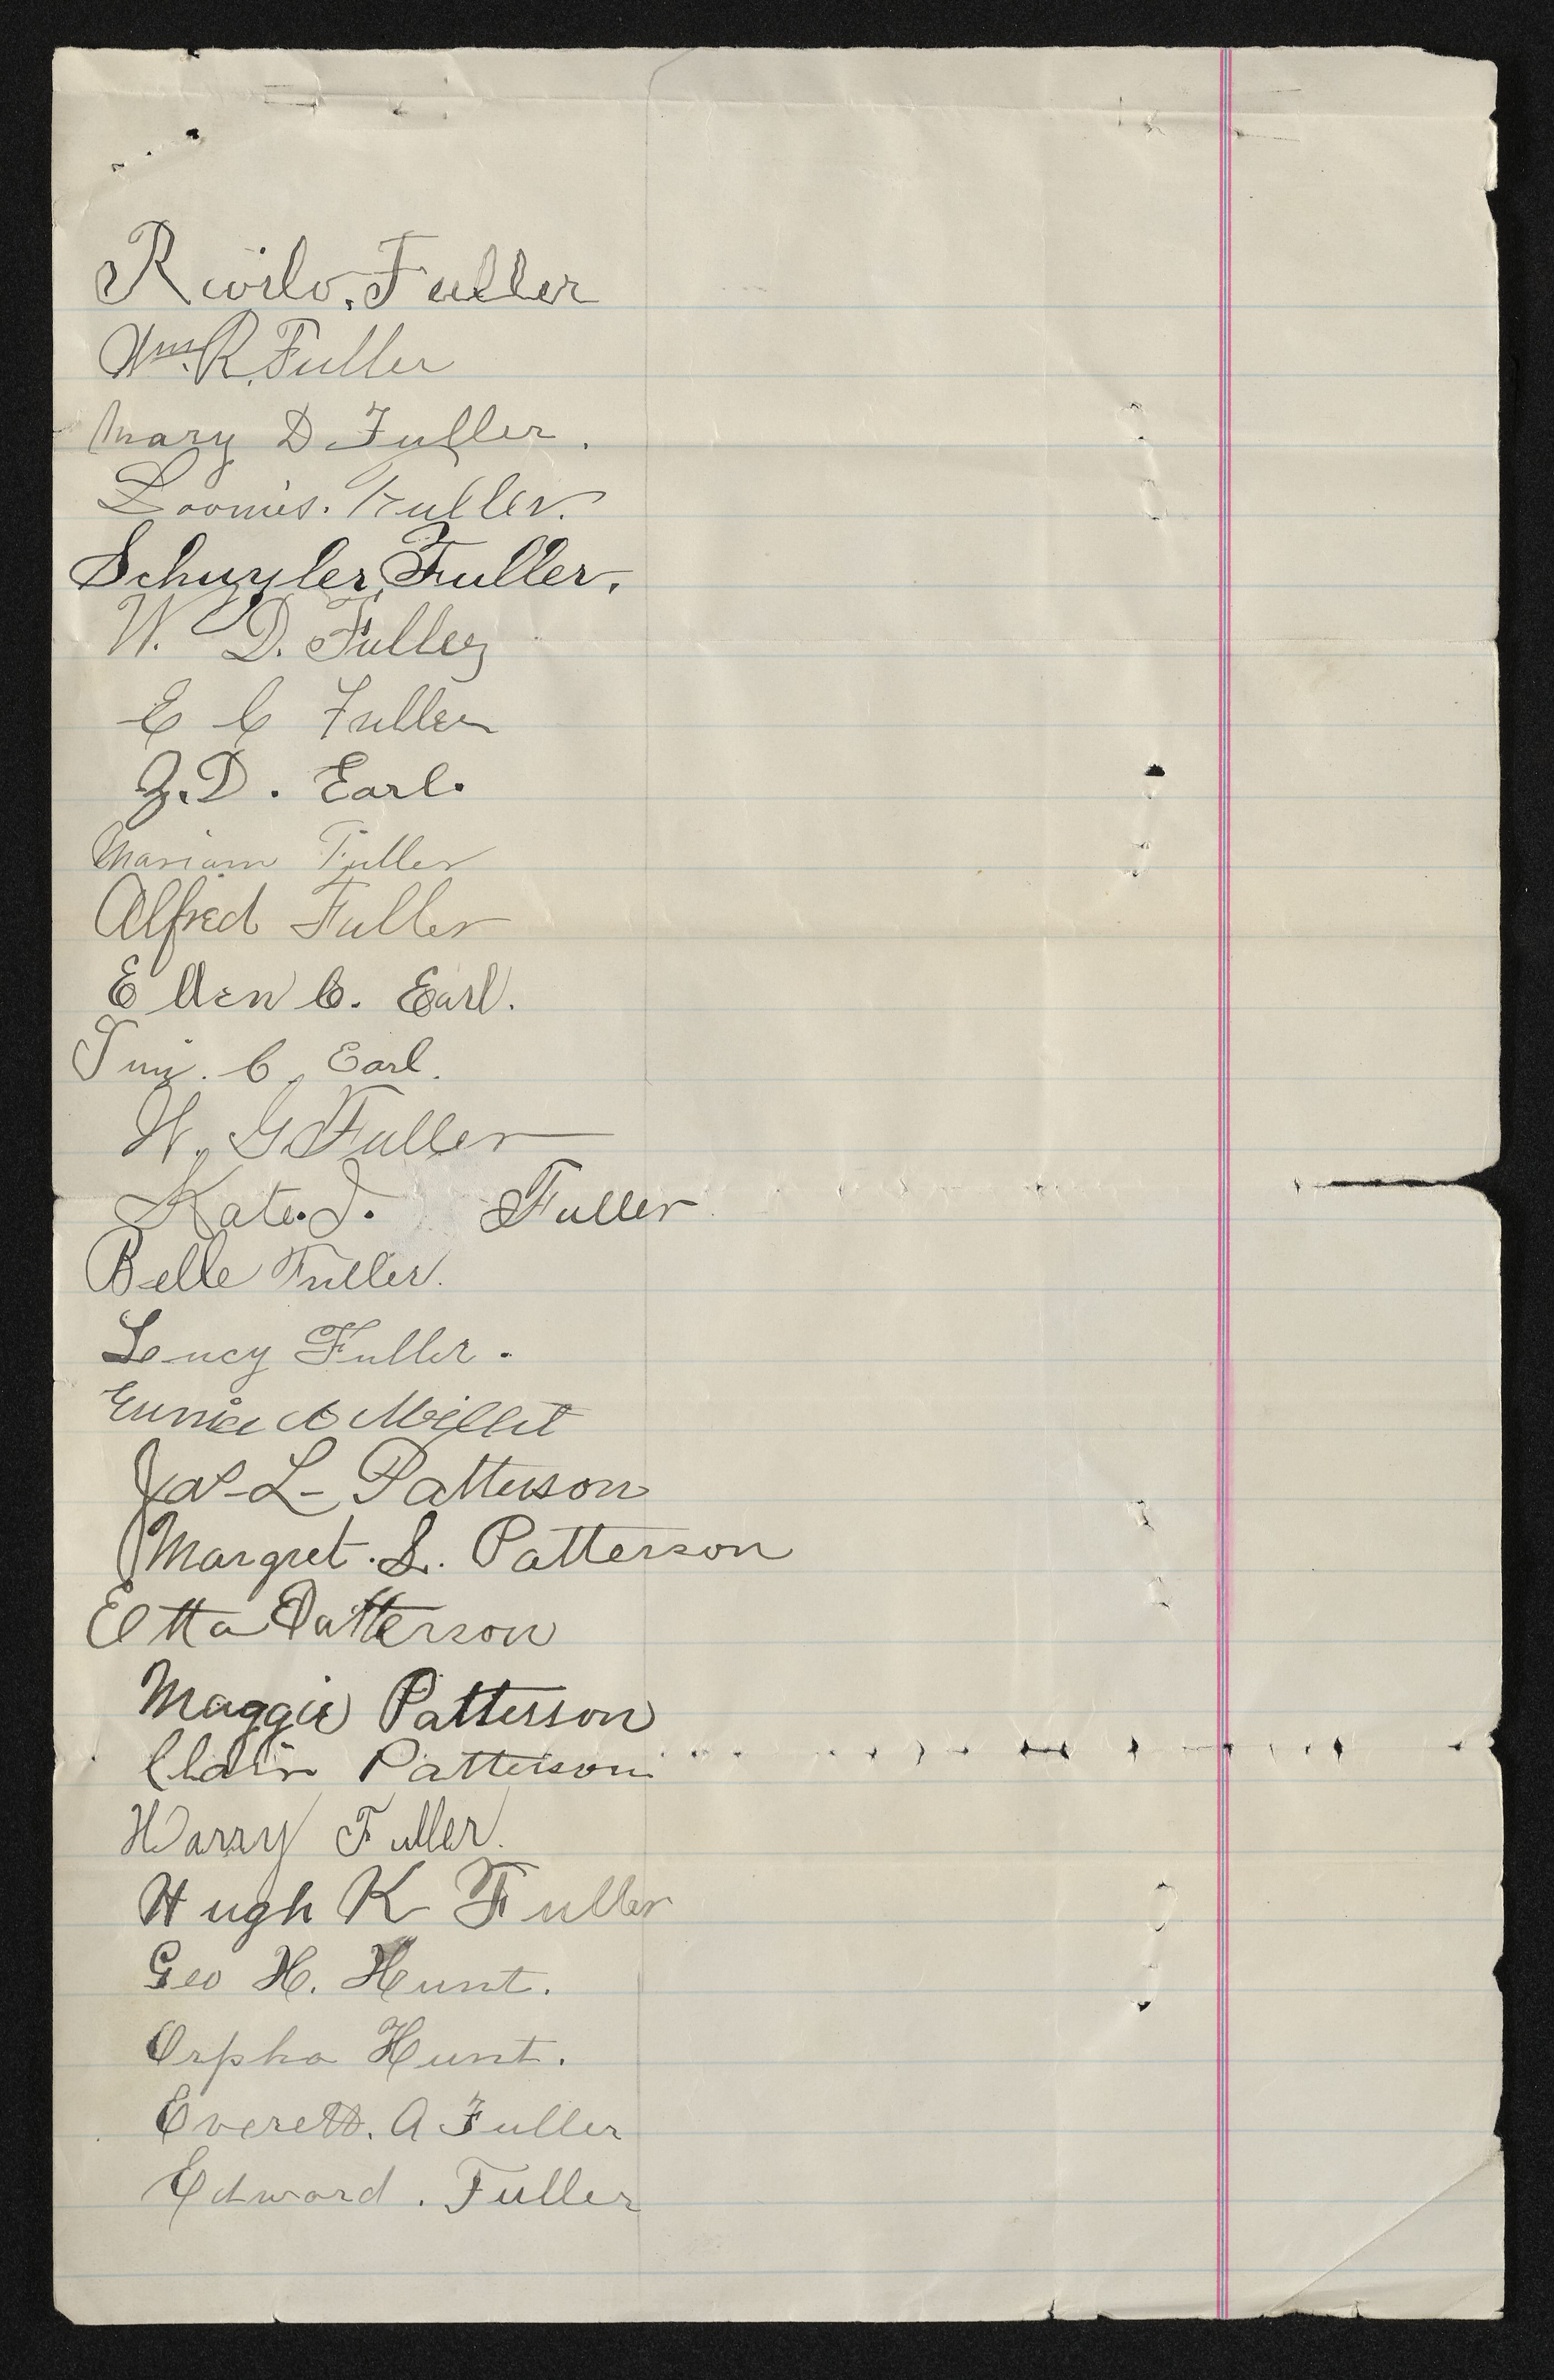 Fuller
Wm. R. Fuller
Mary D Fuller.
Loomis. Fuller.
Schuyler, Fuller.
W. D. Fuller
E C Fuller
Z. D. Earl.
Mariam Fuller
Alfred Fuller
Ellen C. Earl.
C. Earl.
W. G Fuller
Kate. J. Fuller
Belle Fuller.
Lucy Fuller.
Eunice A Millet
Jas - L - Patterson
Margret. L. Patterson
Etta Patterson
Maggie Patterson
Clair Patterson
Harry Fuller.
Hugh K Fuller
Geo H. Hunt.
Orpha Hunt.
Everett. A Fuller
Edward. Fuller